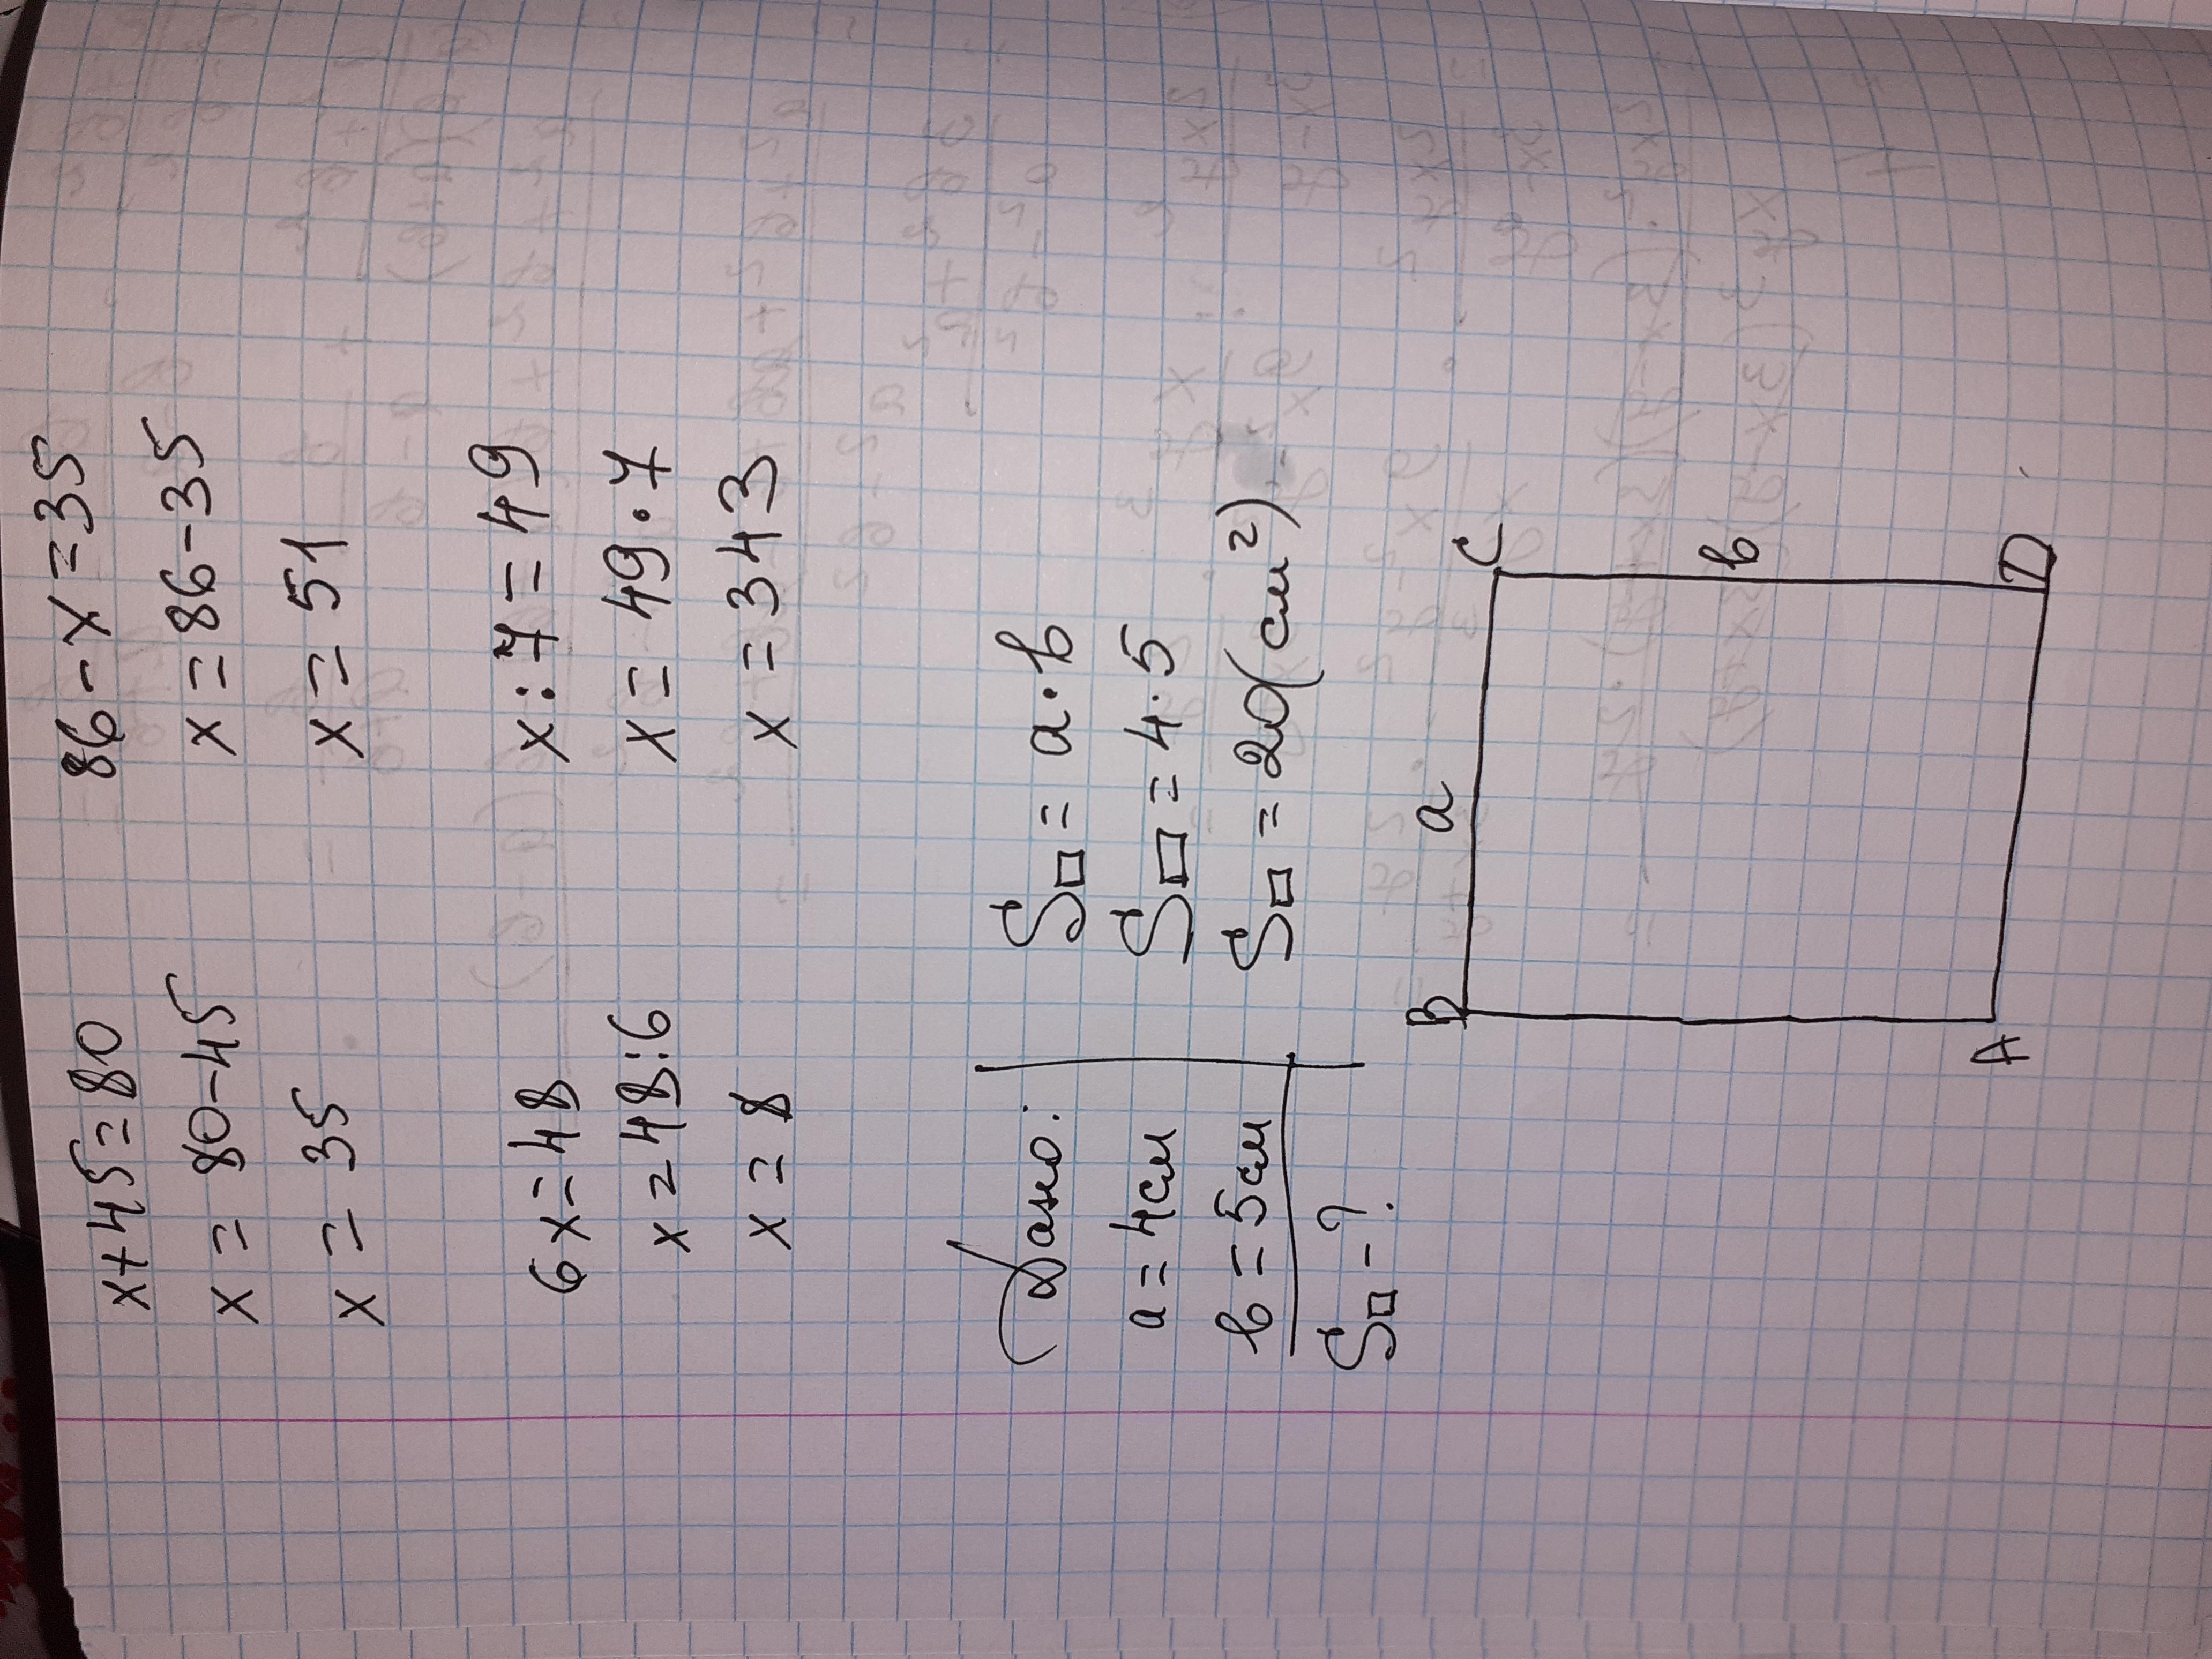 x+45=80
x=80-45
x=35
86-x=35
x=86-35
x=51
6x=48
x=48:6
x=8
x:7=49
x=49·7
x=343
Дано:
a=4см
b=5см
S□-?
S□=a·b
S□=4·5
S□=20(см²)
B a C
b
A D